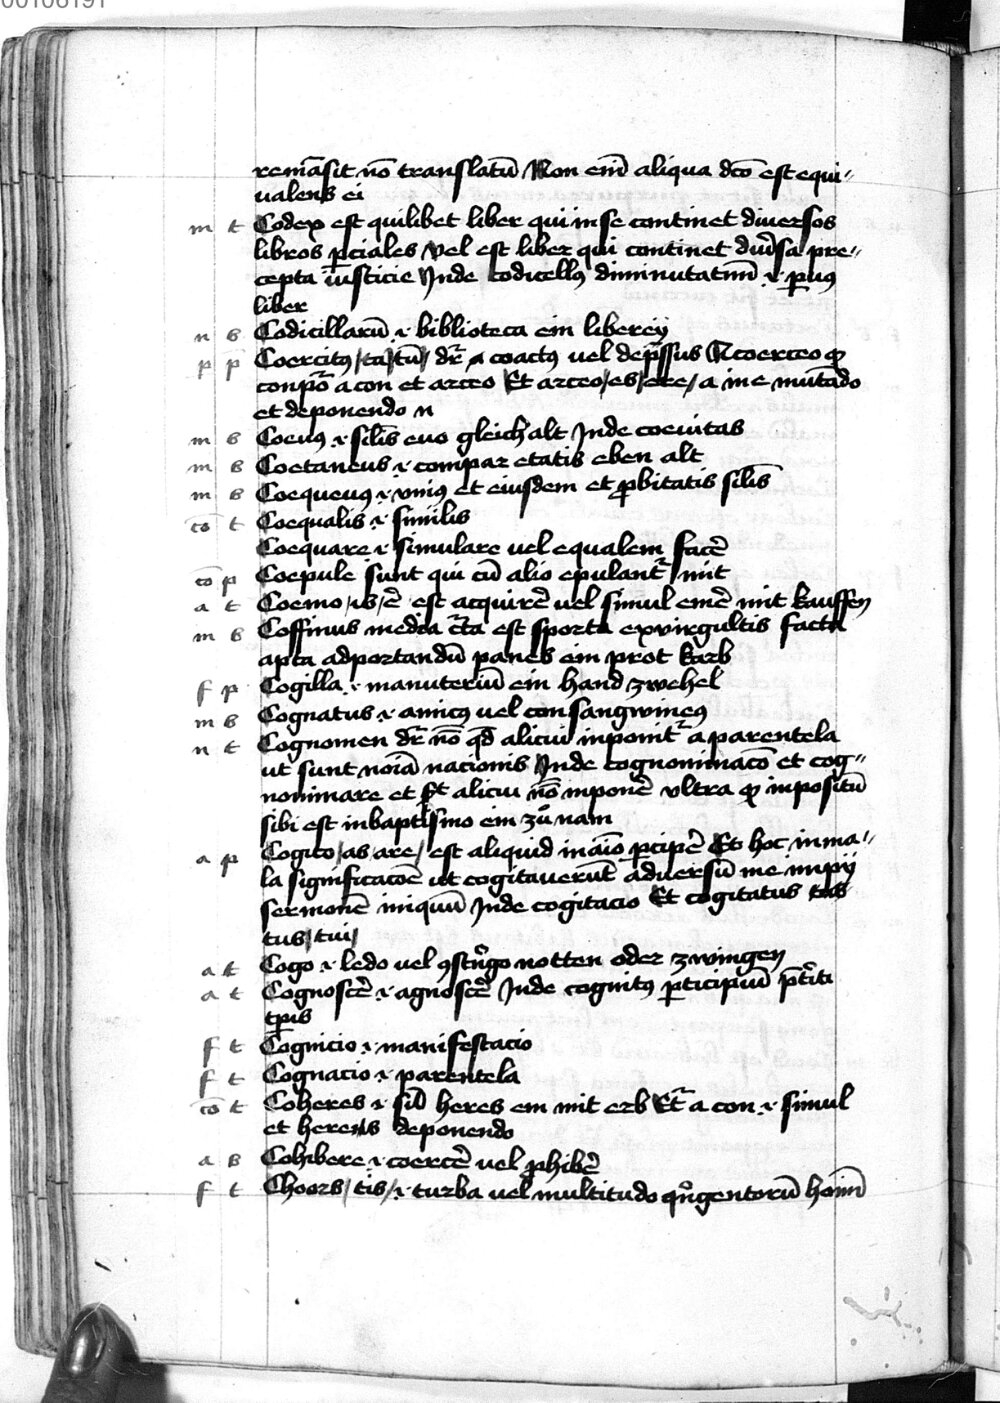 00106191
remāsit nō translatū Non em̄ aliqua dcō est equi⸗
valens ei
m t Codex est quilibet liber qui in se continet diuersos
libros ꝑciales Vel est liber qui continet diūsa pre⸗
cepta iusticie Inde codicellꝰ diminutatim̄ .i. ꝑuꝰ
liber
n s Codicillarū .i. biblioteca ein liberey
p p Coercitꝰ/ta/tū/ dr̄ a coactꝰ vel dep̄ssus A coerceo ꝙ
conpōr a con et arceo Et arceo/es/ere/ a in e mutādo
et deponendo n
m s Coeuꝰ .i. silīs euo gleich alt Inde coeuitas
m s Coetaneus .i. compar etatis eben alt
m s Coequeuꝰ .i. vniꝰ et eiusdem et ꝓbitatis silīs
cō t Coequalis .i. similis
Coequare .i. simulare vel equalem facē
cō p Coepule sunt qui cū alio epulant᷑ mit
a t Coemo/is/ē est acquirē vel simul emē mit kauffen
m s Coffinus media c̄ta est sporta ex virgultis facta
apta ad portandū panes ein prot karb
f p Cogilla .i. manuteriū ein hand zwehel
m s Cognatus .i. amicꝰ vel consangwineꝰ
n t Cognomen dr̄ nō qd̄ alicui inponit᷑ a parentela
ut sunt noīa nacionis Inde cognominacō et cog⸗
nominare et ē alicui nō inponē vltra ꝙ inpositū
sibi est in baptismo ein zůnam
a p Cogito/as/are/ est aliquid in aīo ꝑcipē Et hoc in ma⸗
la significacōe ut cogitauerūt aduersū me impij
sermonē iniquū Inde cogitacio Et cogitatus
tus/tui/
a t Cogo .i. ledo vel ꝯstrīgo notten oder zwingen
a t Cognoscē .i. agnoscē Inde cognitꝰ ꝑticipiū p̄titi
tꝑis
f t Cognicio .i. manifestacio
f t Cognacio .i. parentela
cō t Coheres .i. sil̄ heres ein mit erb Et᷑ a con .i. simul
et herens deponendo
a s Cohibere .i. coercē vel ꝓhibē
f t Choors/tis/ .i. turba vel multitudo qn̄gentorū hoīm̄